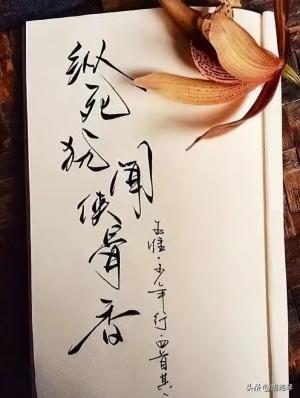 纵死犹闻侠骨香
王维·少年行·四首其
头条